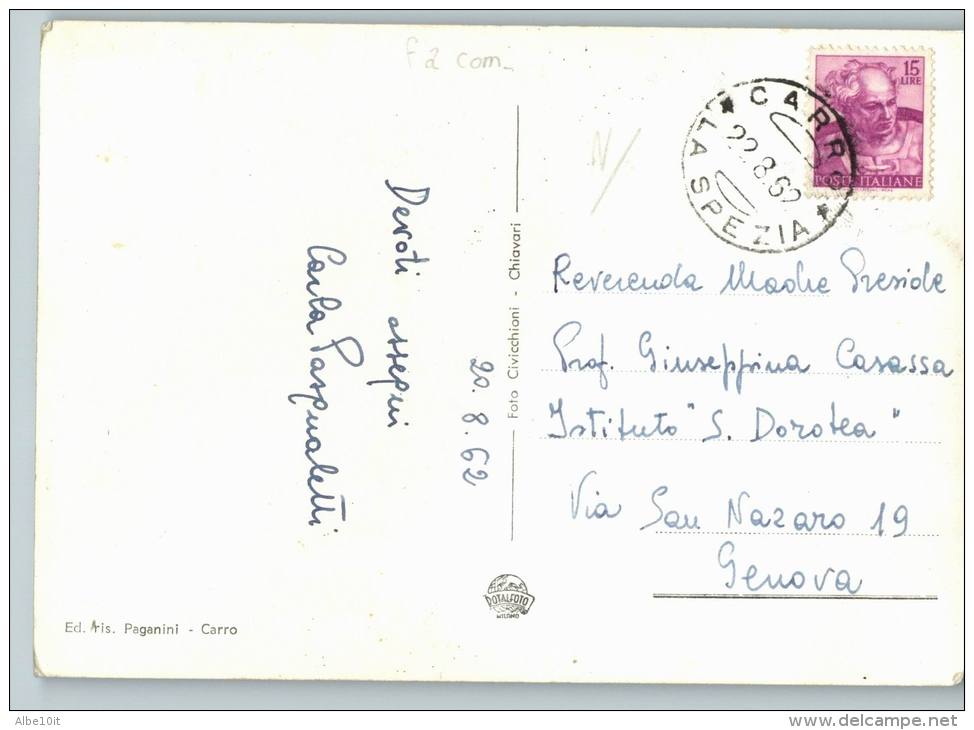 f2 com_
N/
15
LIRE
POSTE ITALIANE
* CARRO *
LA SPEZIA
22.8.62
Devoti ossequi
Carla Pasqualetti
20.8.62
Foto Civicchioni - Chiavari
Reverenda Madre Preside
Prof. Giuseppina Casassa
Istituto "S. Dorotea"
Via San Nazaro 19
Genova
ROTALFOTO
MILANO
Ed. Aris. Paganini - Carro
Albe10it
www.delcampe.net